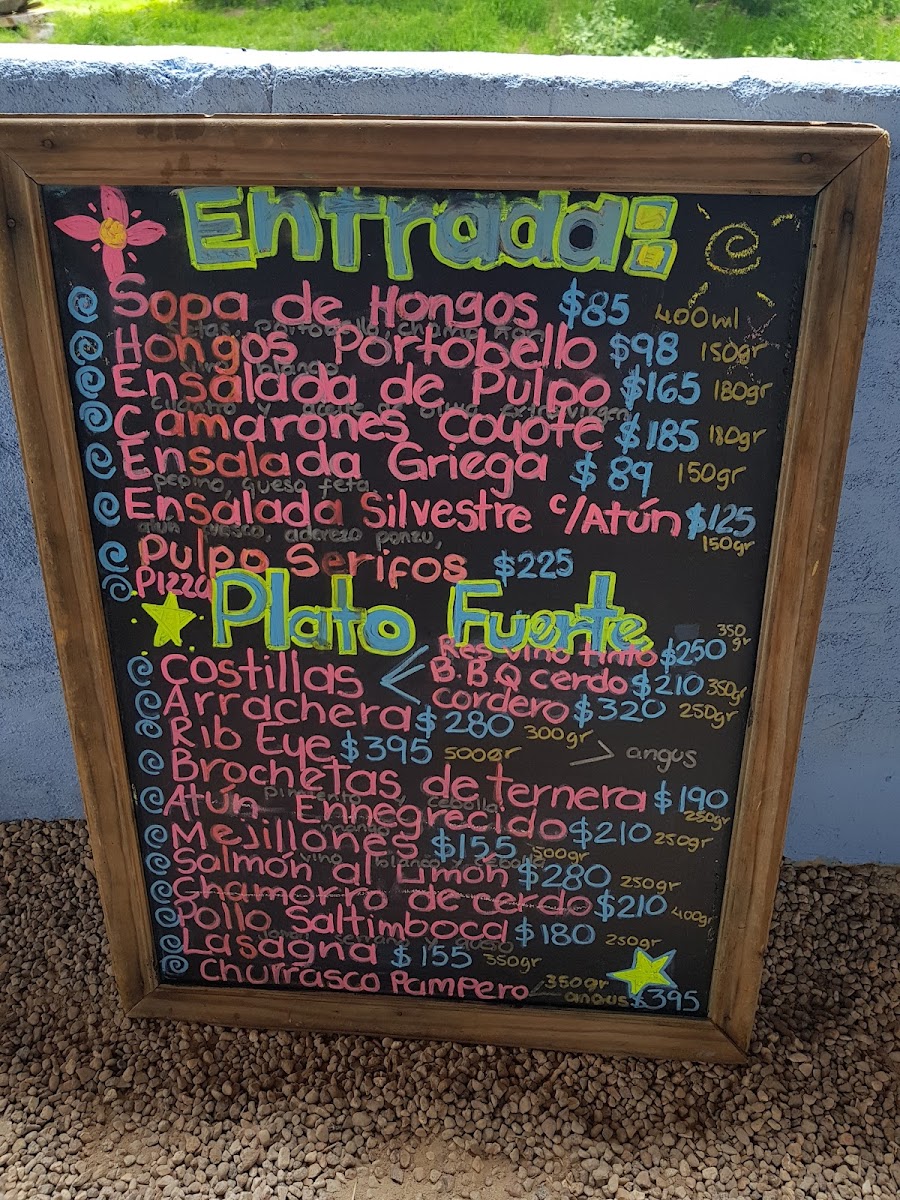 Entrada:
Sopa de Hongos $85 400ml
setas, portobello, champiñon
Hongos Portobello $98 150gr
vino blanco
Ensalada de Pulpo $165 180gr
cilantro y aceite de oliva extra virgen
Camarones Coyote $185 180gr
Ensalada Griega $89 150gr
pepino, queso feta
Ensalada Silvestre c/Atún $125
atun fresco, aderezo ponzu, 150gr
Pulpo Serifos $225
Pizza
Plato Fuerte
Res vino tinto $250 350 gr
Costillas < B.B.Q cerdo $210 350gr
Cordero $320 250gr
Arrachera $280 300gr
Rib Eye $395 500gr > angus
Brochetas de ternera $190
pimiento y cebolla 250gr
Atún Ennegrecido $210 250gr
mango
Mejillones $155 500gr
vino blanco y
Salmón al Limón $280 250gr
Chamorro de cerdo $210 400gr
Pollo Saltimboca $180 250gr
serrano y queso
Lasagna $155 350gr
Churrasco Pampero 350gr
angus $395